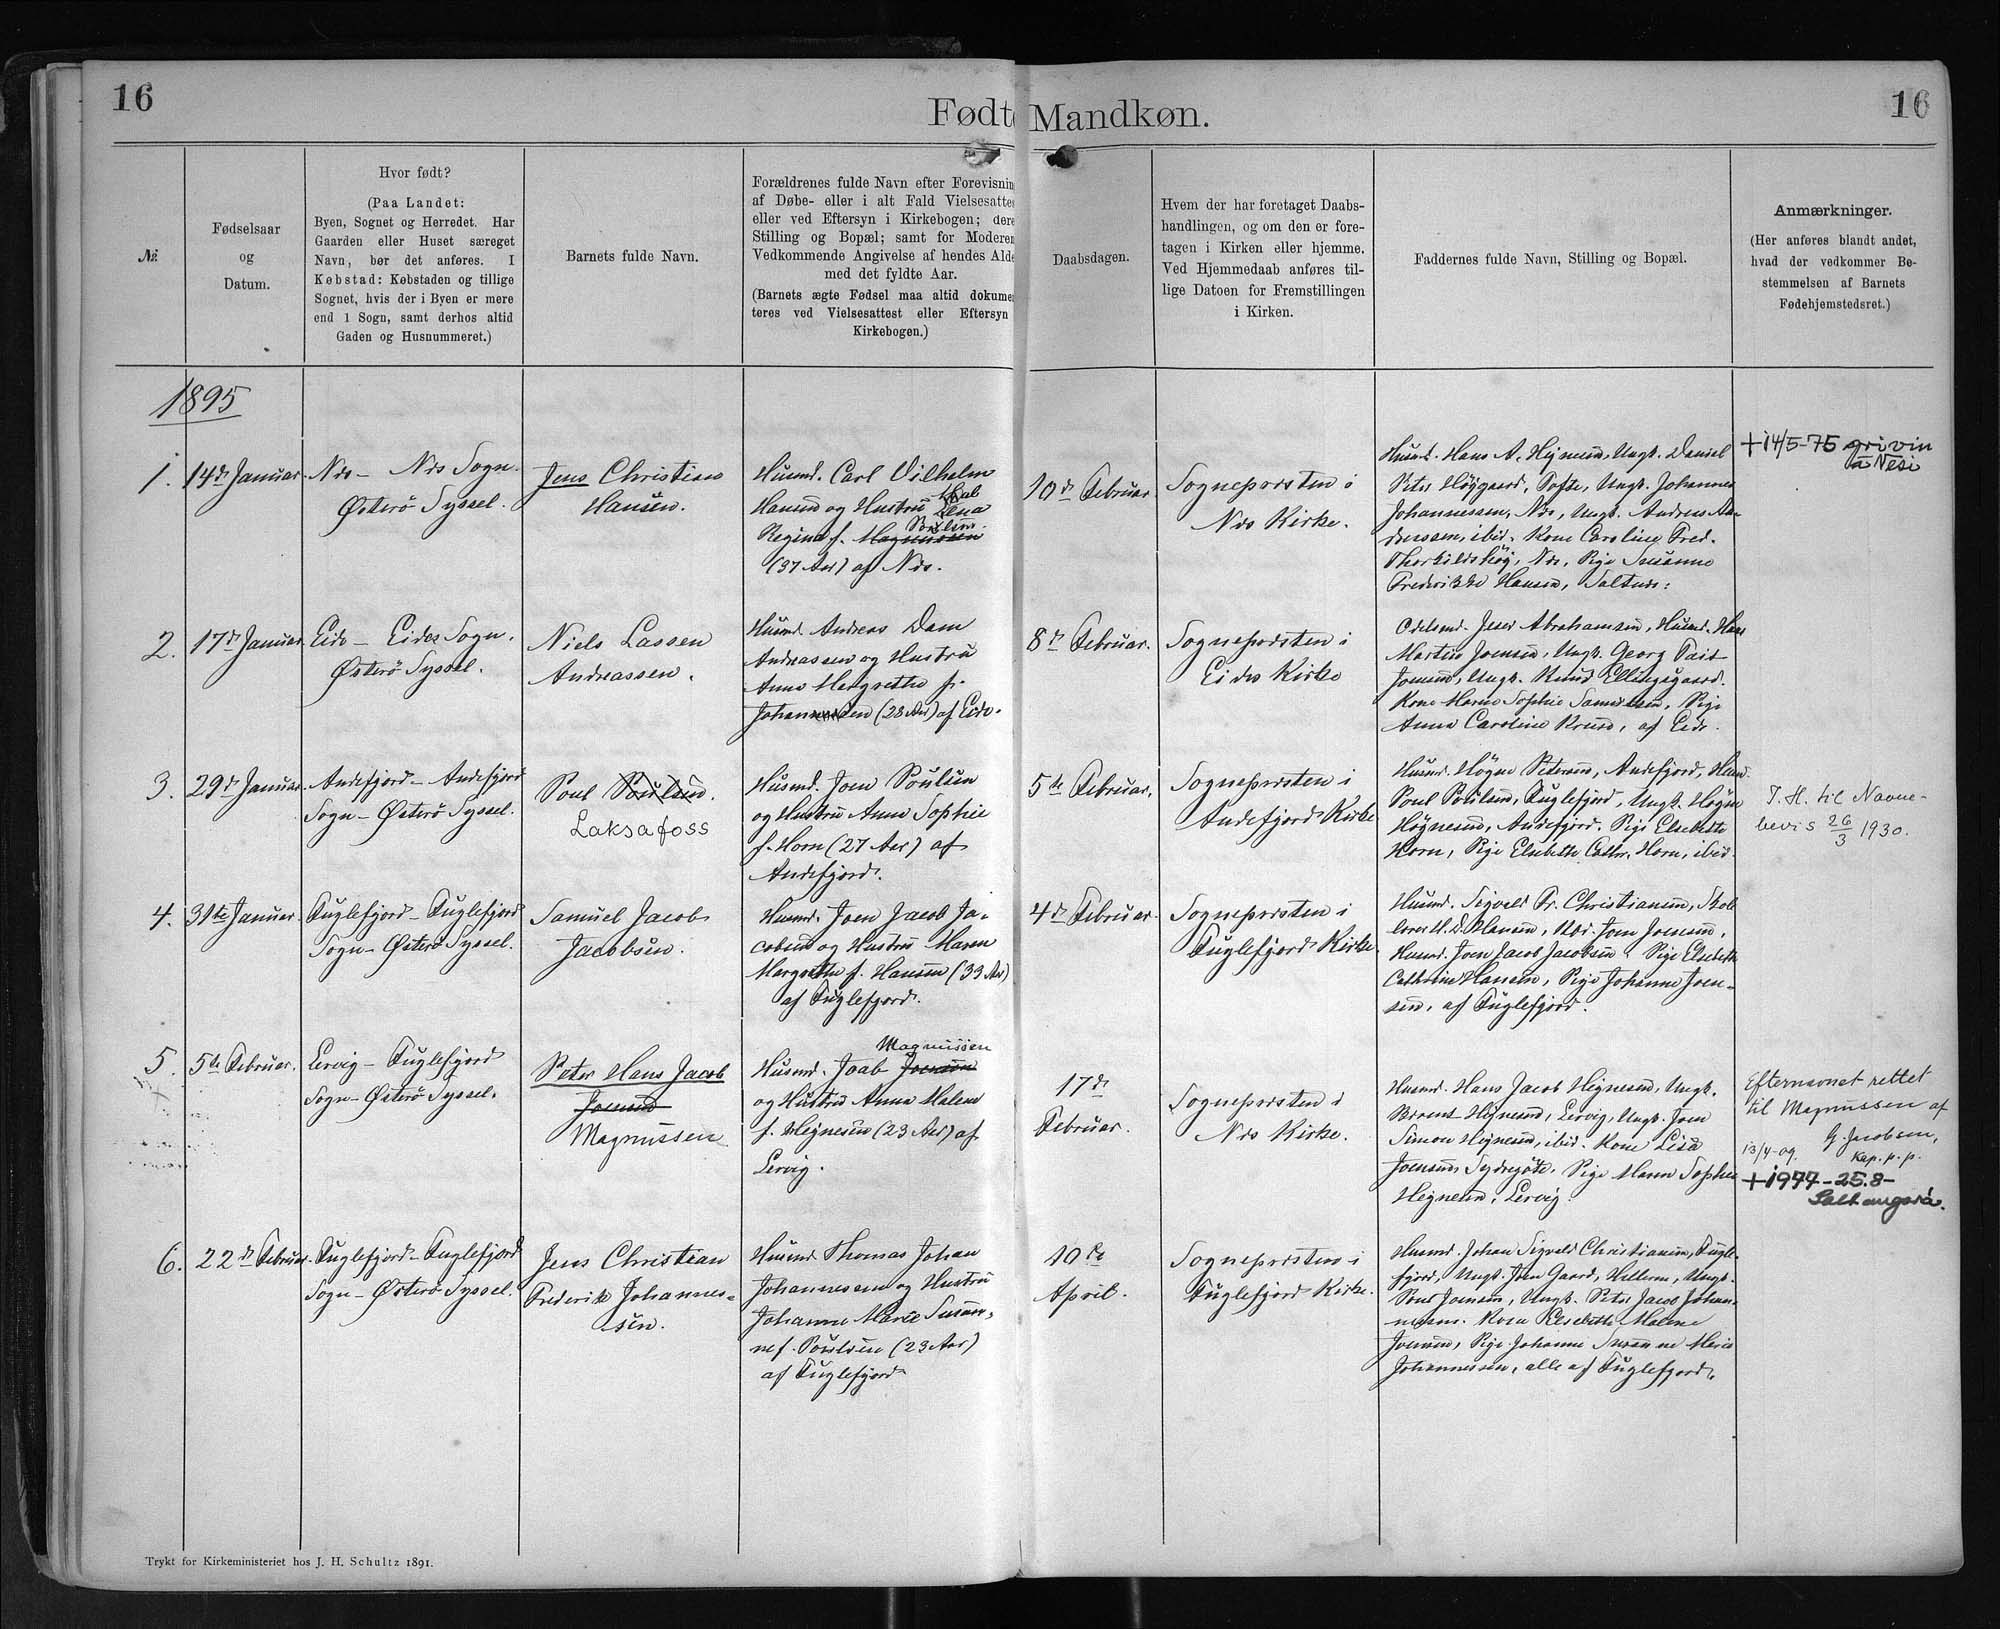 16
Fødte Mandkøn.
16
№
Fødselsaar
og
Datum.
Hvor født?
(Paa Landet:
Byen, Sognet og Herredet. Har
Gaarden eller Huset særeget
Navn, bør det anføres. I
Købstad: Købstaden og tillige
Sognet, hvis der i Byen er mere
end 1 Sogn, samt derhos altid
Gaden og Husnummeret.)
Barnets fulde Navn.
Forældrenes fulde Navn efter Forevisnin
af Døbe- eller i alt Fald Vielsesattes
eller ved Eftersyn i Kirkebogen; dere
Stilling og Bopæl; samt for Moderen
Vedkommende Angivelse af hendes Alde
med det fyldte Aar.
(Barnets ægte Fødsel maa altid dokume
teres ved Vielsesattest eller Eftersyn
Kirkebogen.)
Daabsdagen.
Hvem der har foretaget Daabs-
handlingen, og om den er fore-
tagen i Kirken eller hjemme.
Ved Hjemmedaab anføres til-
lige Datoen for Fremstillingen
i Kirken.
Faddernes fulde Navn, Stilling og Bopæl.
Anmærkninger.
(Her anføres blandt andet,
hvad der vedkommer Be-
stemmelsen af Barnets
Fødehjemstedsret.)
1895
1.
14de Januar.
Nes - Nes Sogn.
Østerø Syssel.
Jens Christian
Hansen.
Husmd. Carl Vilhelm
Hansen og Hustru Lena
Regine f. Magnussen
Poulsen.
(37 Aar) af Nes.
10de Februar
Sognepresten i
Nes Kirke.
Husmd. Hans A. Hejnesen, Ungk. Daniel
Peter Höygaard, Tofte, Ungk. Johannes
Johannessen, Nes, Ungk. Andreas An-
dreassen, ibid. Kone Caroline Fred.
Thorkildshøj, Nes, Pige Susanne
Frederikke Hansen, Saltnes:
+ 14/5-75 grivin
á Nesi
2.
17de Januar.
Eide - Eides Sogn.
Østerø Syssel.
Niels Lassen
Andreassen.
Husmd. Andreas Dam
Andreassen og Hustru
Anne Margrethe f.
Johannessen (28 Aar) af Eide.
8de Februar.
Sognepresten i
Eides Kirke
Odelsmd. Jeser Abrahamsen, Husmd. Hans
Martin Joensen, Ungk. Georg Tait
Joensen, Ungk. Knud Ellingsgaard.
Kone Maren Sophie Samuelsen, Pige
Anna Caroline Kruse, af Eide.
3.
29de Januar.
Andefjord - Andefjord
Sogn - Østerø Syssel.
Poul Poulsen.
Laksafoss
Husmd. Joen Poulsen
og Hustru Anne Sophie
f. Horn (27 Aar) af
Andefjord.
5te Februar.
Sognepresten i
Andefjord Kirke
Husmd. Högne Petersen, Andefjord, Husmd.
Poul Poulsen, Fuglefjord, Ungk. Högne
Högnesen, Andefjord. Pige Elsebeth
Horn, Pige Elsebeth Cathr. Horn, ibid.
J. H. til Navne-
bevis 26/3 1930.
4.
31te Januar.
Fuglefjord - Fuglefjord
Sogn - Østerø Syssel.
Samuel Jacob
Jacobsen.
Husmd. Joen Jacob Ja-
cobsen og Hustru Maren
Margrethe f. Hansen (33 Aar)
af Fuglefjord.
4de Februar.
Sognepresten i
Fuglefjord Kirke.
Husmd. Sigvald Fr. Christiansen, Skole
lærer H. D. Hansen, Joen Joensen,
Husmd. Joen Jacob Jacobsen. Pige Elsebeth
Cathrine Hansen, Pige Johanne Joen-
sen, af Fuglefjord.
5.
5te Februar.
Lervig - Fuglefjord
Sogn - Østerø Syssel.
Peter Hans Jacob
Joensen
Magnussen
Magnussen
Husmd. Joab Joensen
og Hustru Anna Malene
f. Hejnesen (23 Aar) af
Lervig.
17de
Februar.
Sognepresten i
Nes Kirke.
Husmd. Hans Jacob Hejnesen, Ungk.
Berent Hejnesen, Lervig, Ungk. Joen
Simon Hejnesen, ibid. Kone Lisa
Joensen, Sydregøte, Pige Maren Sophie
Hejnesen, Lervig.
Efternavnet rettet
til Magnussen af
G. Jacobsen,
13/4-09. Kap. p. p.
+ 1977-25.8-
Saltangará.
6.
22de Februar.
Fuglefjord - Fuglefjord
Sogn - Østerø Syssel.
Jens Christian
Frederik Johannes-
sen.
Husmd. Thomas Johan
Johannessen og Hustru
Johanne Marie Susan-
ne f. Poulsen (23 Aar)
af Fuglefjord
10de
April.
Sognepresten i
Fuglefjord Kirke.
Husmd. Johan Sigvald Christiansen, Fugle-
fjord, Ungk. Joen Gaard, Hellerne, Ungk.
Poul Joensen, Ungk. Peter Jacob Johan-
nessen. Kone Elsebeth Malene
Joensen, Pige Johanne Susanne Marie
Johannessen, alle af Fuglefjord.
Trykt for Kirkeministeriet hos J. H. Schultz 1891.